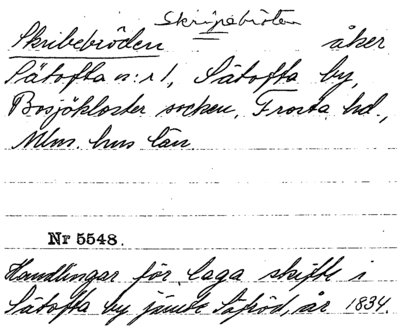 Skripebröten
Skribebröden åker
Sätofta n:r 1, Sätofta by,
Bosjökloster socken, Frosta hd,
Mlm. hus län
Nr 5548.
Handlingar för laga skifte i
Sätofta by jämte år 1834.